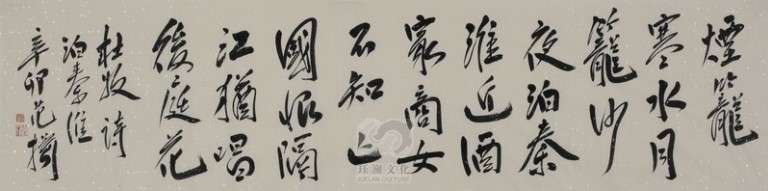 煙籠
寒水月
籠沙
夜泊秦
淮近酒
家商女
不知亡
國恨隔
江猶唱
後庭花
杜牧詩
泊秦淮
辛卯范
珏澜文化
JUELAN CULTURE